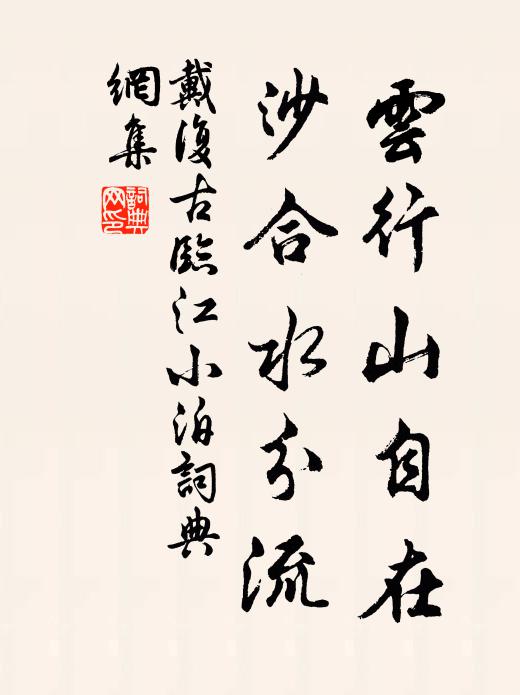 雲行山自在
沙合水分流
戴復古臨江小泊詞典
網集
詞典
网印